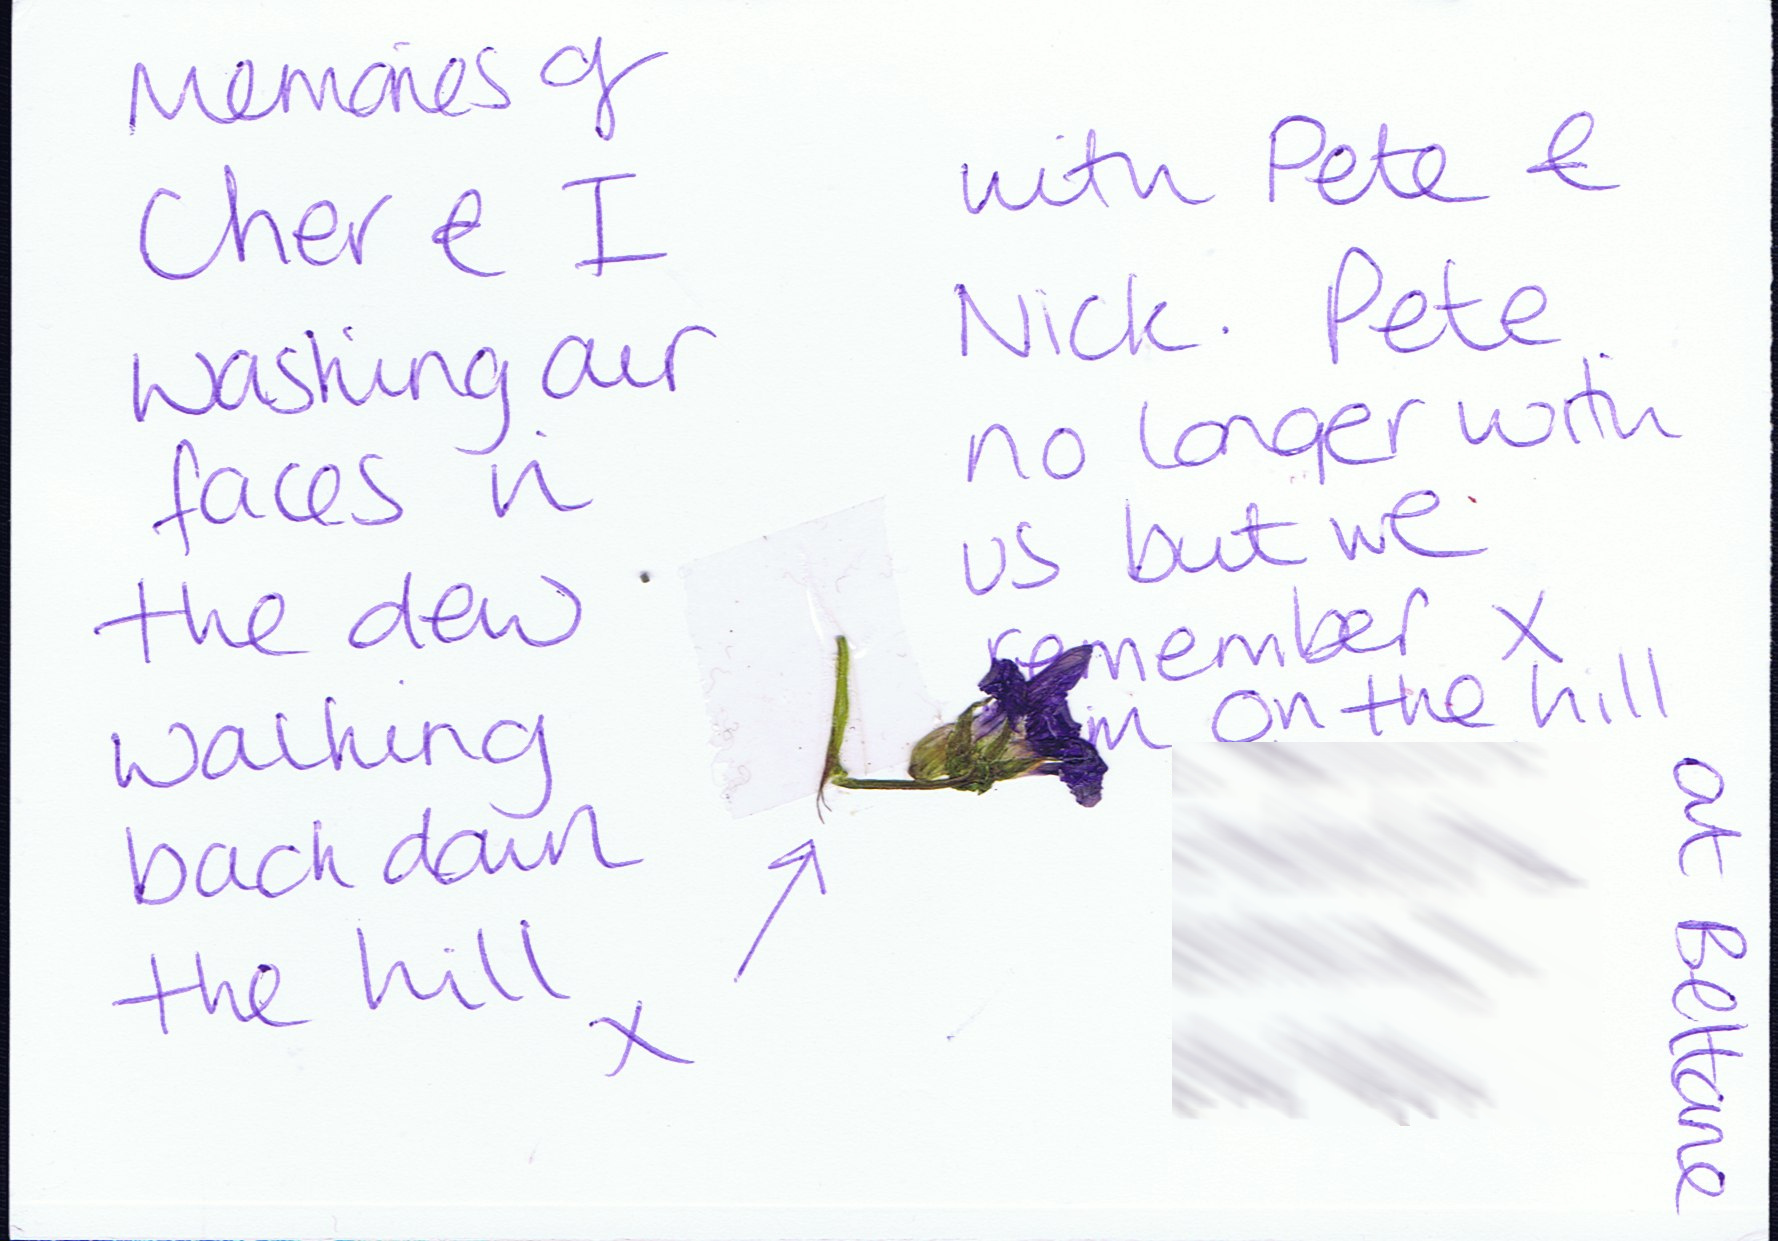 Memories of
Cher & I
washing our
faces in
the dew
walking
back down
the hill x
with Pete &
Nick. Pete
no longer with
us but we
remember x
him on the hill
at Beltane